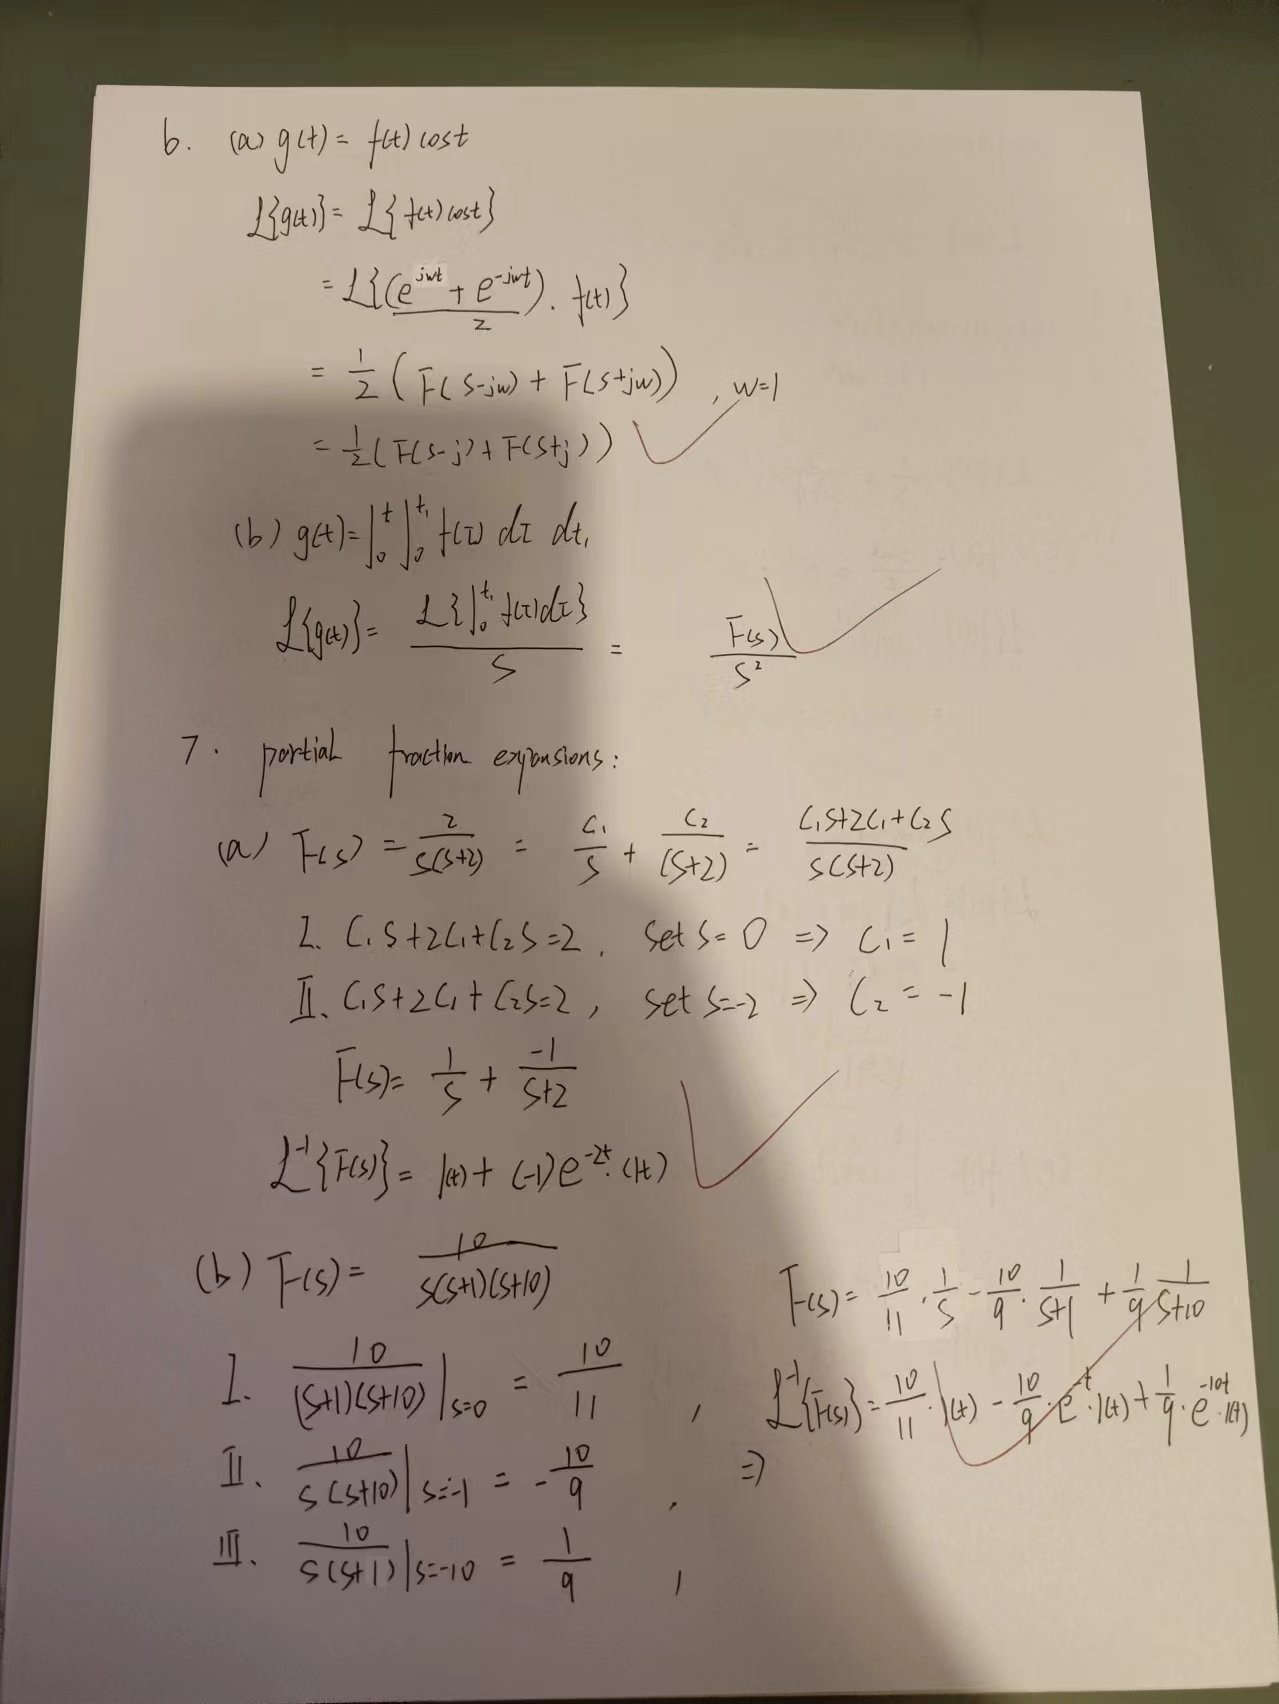 6. (a) g(t) = f(t) cost
ℒ{g(t)} = ℒ{f(t) cost}
= ℒ{(e^{jwt} + e^{-jwt})/2 · f(t)}
= 1/2 (F(s-jw) + F(s+jw)) , w=1
= 1/2 (F(s-j) + F(s+j))
(b) g(t) = ∫_0^t ∫_0^{t_1} f(τ) dτ dt_1
ℒ{g(t)} = ℒ{∫_0^{t_1} f(τ)dτ} / s = F(s) / s^2
7. partial fraction expansions:
(a) F(s) = 2/(s(s+2)) = c_1/s + c_2/(s+2) = (c_1s+2c_1+c_2s)/(s(s+2))
I. c_1s+2c_1+c_2s=2, set s=0 => c_1 = 1
II. c_1s+2c_1+c_2s=2, set s=-2 => c_2 = -1
F(s) = 1/s + -1/(s+2)
ℒ^{-1}{F(s)} = 1(t) + (-1)e^{-2t}·(1t)
(b) F(s) = 10/(s(s+1)(s+10))
I. 10/((s+1)(s+10)) |_{s=0} = 10/11 ,
II. 10/(s(s+10)) |_{s=-1} = -10/9 ,
III. 10/(s(s+1)) |_{s=-10} = 1/9 ,
=>
F(s) = 10/11 · 1/s - 10/9 · 1/(s+1) + 1/9 1/(s+10)
ℒ^{-1}{F(s)} = 10/11 · 1(t) - 10/9 · e^{-t} · 1(t) + 1/9 · e^{-10t} · 1(t)